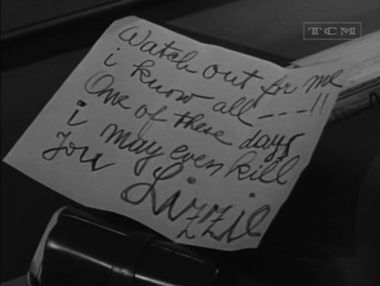 TCM
Watch out for me
i know all ---!!
One of these days
i may even kill
You
Lizzie